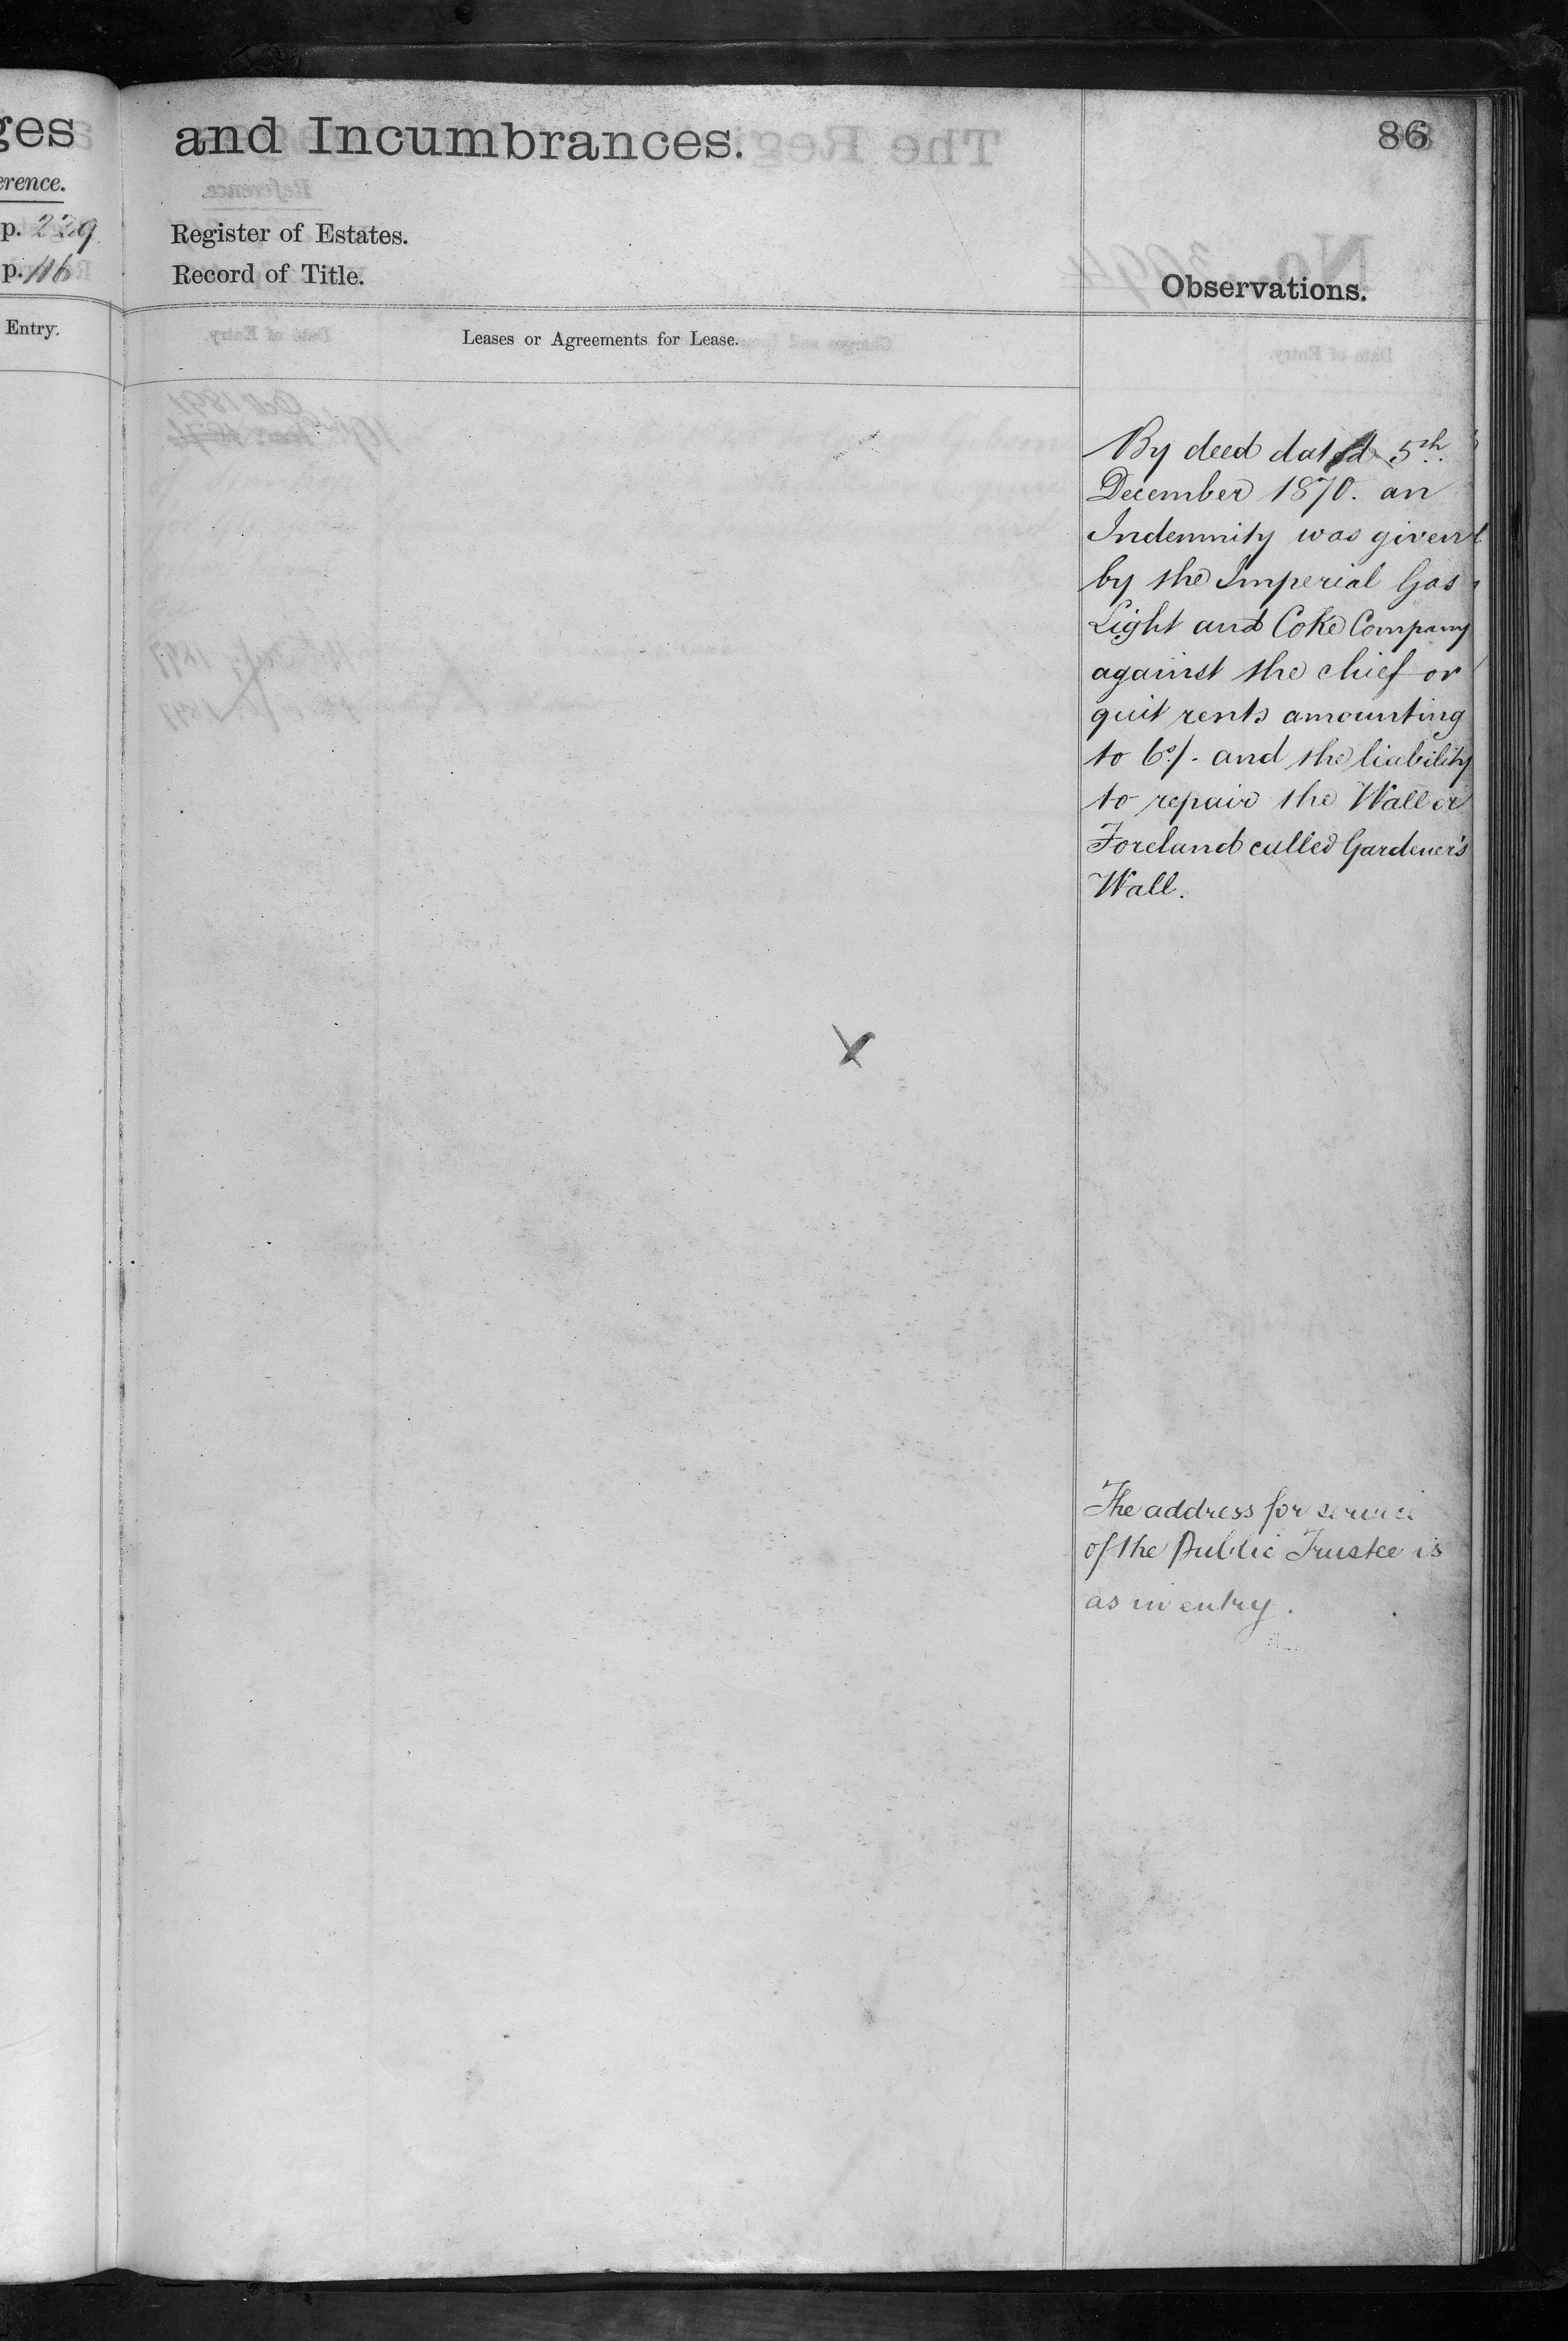 ges
erence.
p. 229
p. 116
Entry.
and Incumbrances.
86
Register of Estates.
Record of Title.
Observations.
Leases or Agreements for Lease.
By deed dated 5th
December 1870. an
Indemnity was given
by the Imperial Gas
Light and Coke Company
against the chief or
quit rents amounting
to 6s/- and the liability
to repair the Wall or
Foreland called Gardener's
Wall.
The address for service
of the Public Trustee is
as in entry.